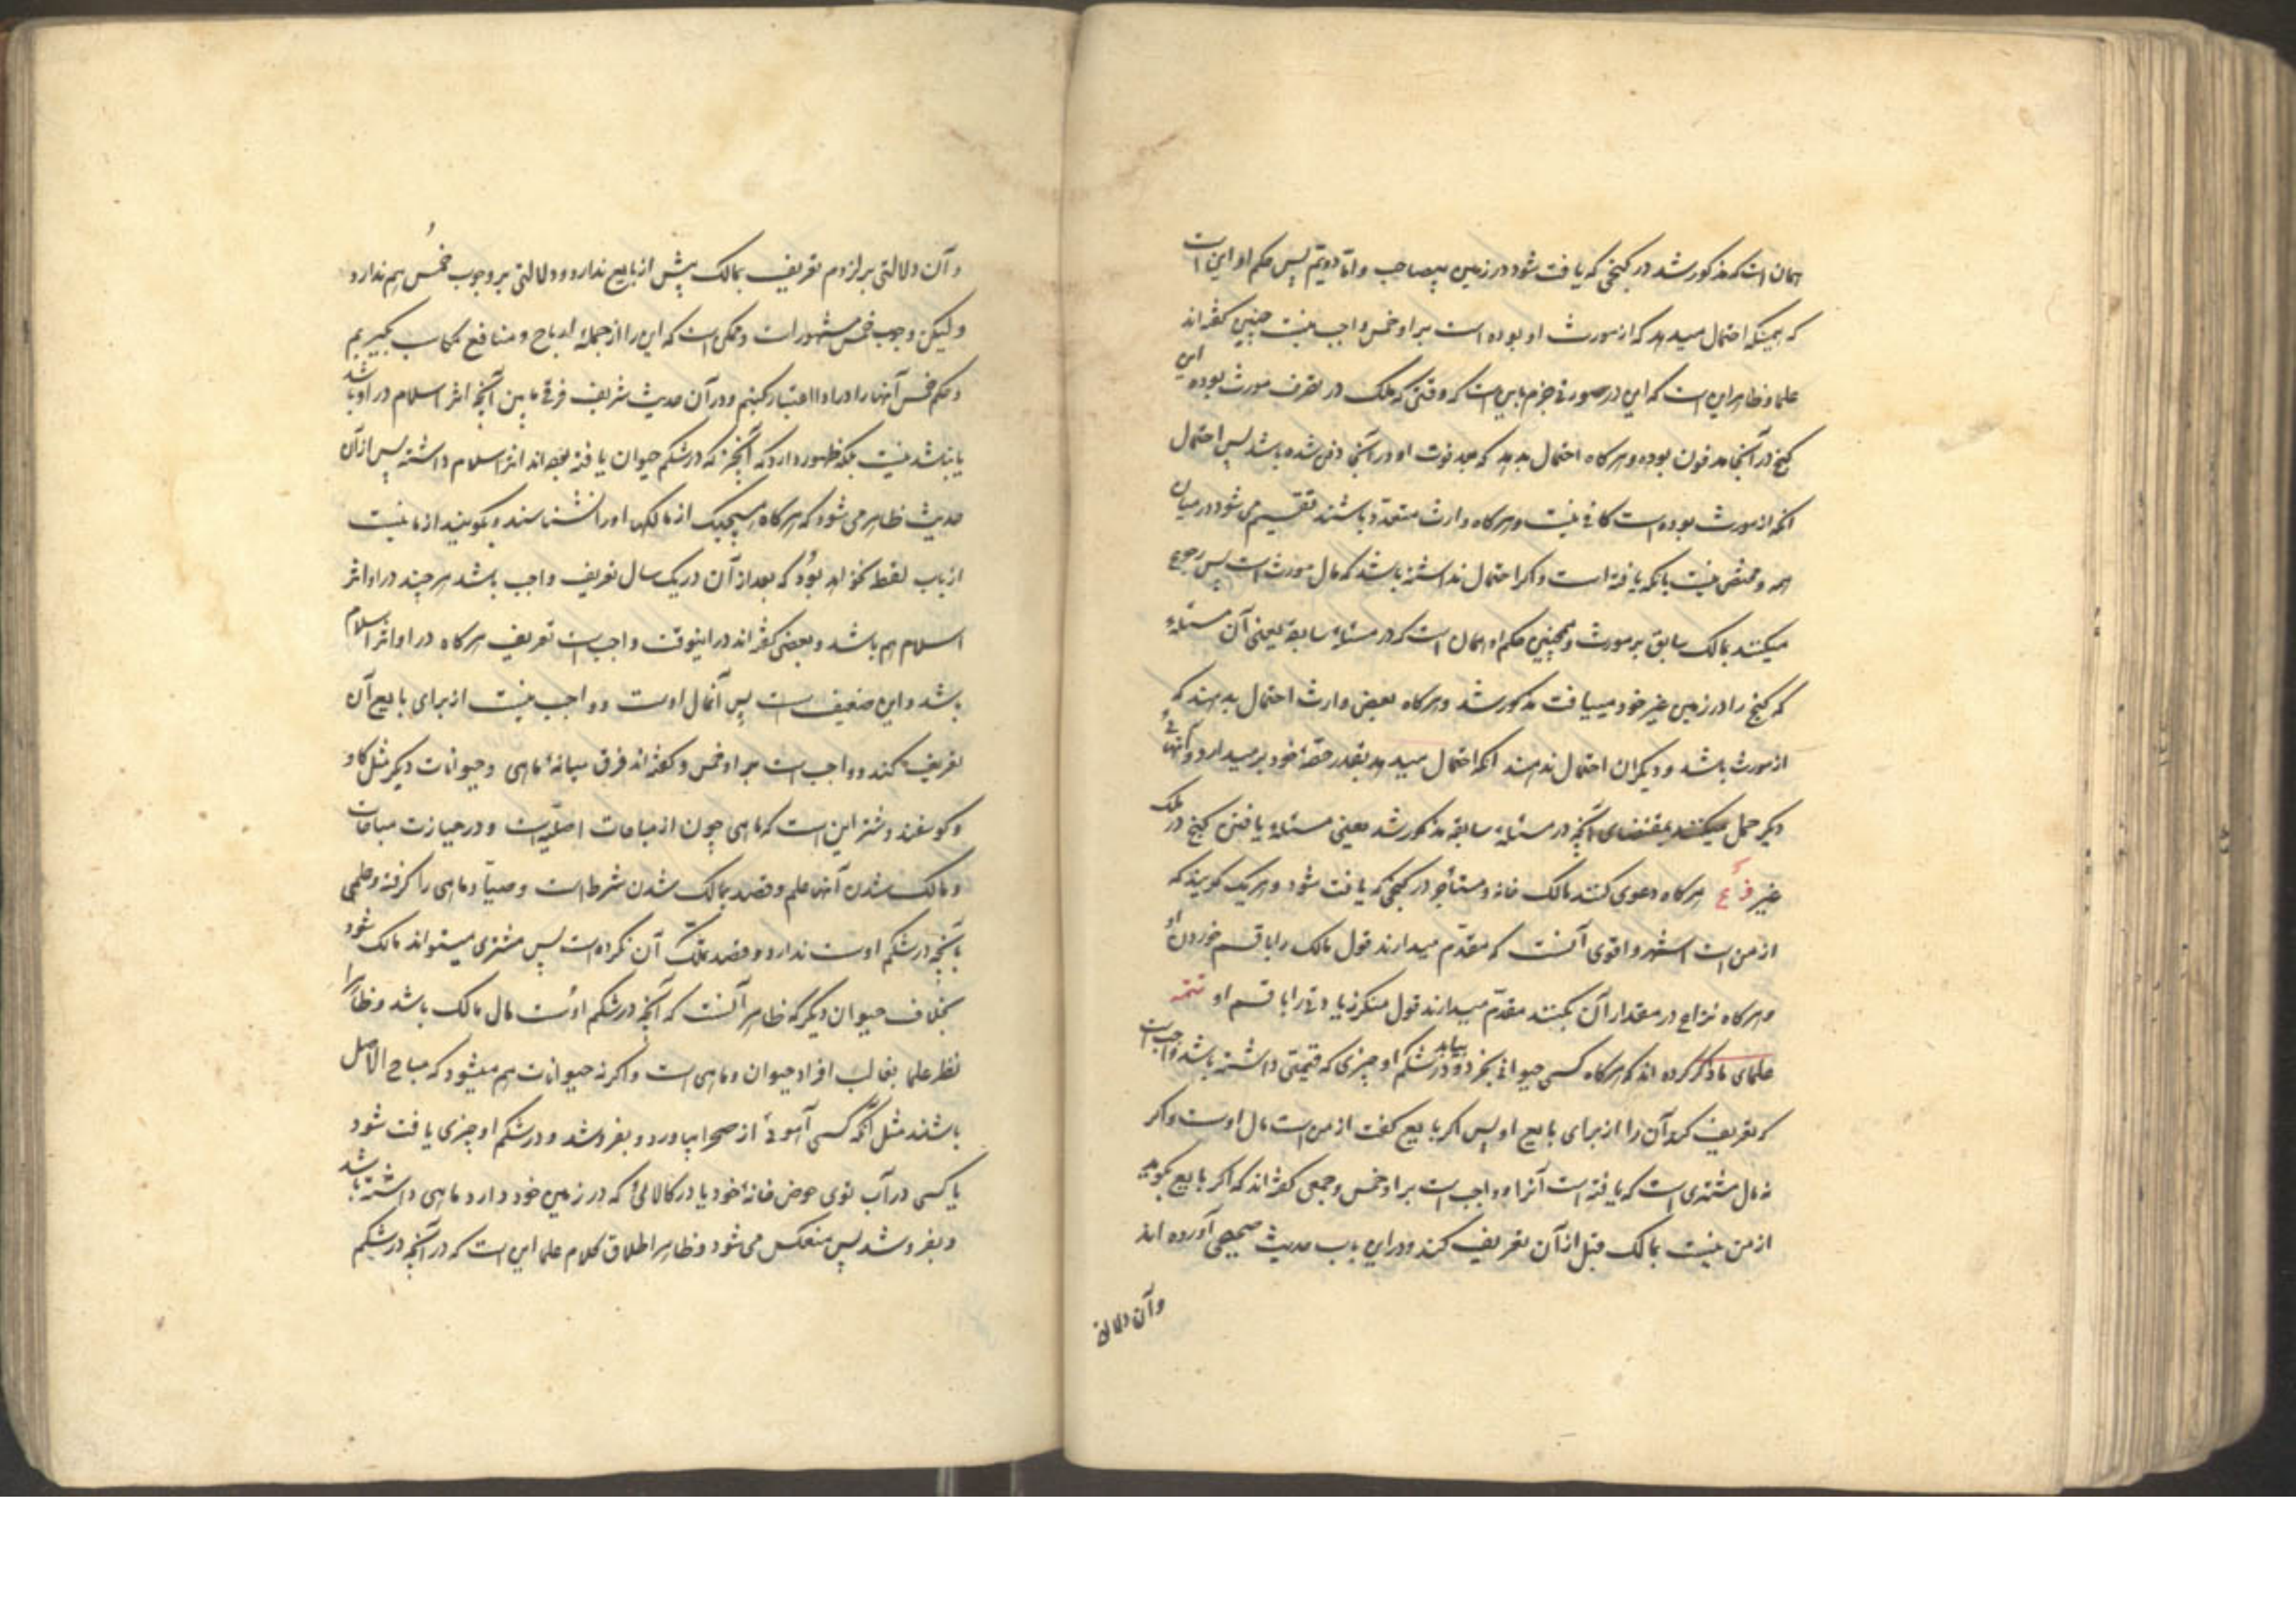 همان است که مذکور شد در گنجی که یافت شود در زمین بیصاحب و اما دویم پس حکم او این است
که همینکه احتمال میدهد که از مورث او بوده است بر او خمس واجب نیست چنین گفته‌اند
علما و ظاهر این است که این در صورت جزم باین است که وقتی که ملک در تصرف مورث بوده این
گنج در آنجا مدفون بوده و هرگاه احتمال بدهد که بعد فوت او در آنجا دفن شده باشد پس احتمال
آنکه از مورث بوده است کافی نیست و هرگاه وارث متعدد باشند تقسیم می شود در میان
همه و مختص نیست بآنکه یافته است و اگر احتمال نداشته باشد که مال مورث است پس رجوع
میکنند بمالک سابق بر مورث و همچنین حکم او همان است که در مسئلهٔ سابقه یعنی آن مسئلهٔ
که گنج را در زمین غیر خود میبیافت مذکور شد و هرگاه بعض وارث احتمال بدهند که
از مورث باشد و دیگران احتمال ندهند آنکه احتمال میدهد بقدر حصهٔ خود برمیدارد و آنهای
دیگر حمل میکنند بمقتضای آنچه در مسئلهٔ سابقه مذکور شد یعنی مسئلهٔ یافتن گنج در ملک
غیر فرع هرگاه دعوی کنند مالک خانه و مستأجر در گنجی که یافت شود و هر یک گویند که
از من است اشهر و اقوی آنست که مقدم میدارند قول مالک را با قسم خوردن او
و هرگاه نزاع در مقدار آن بکنند مقدم میدارند قول منکر زیادتی را با قسم او تتمه
علمای ما ذکر کرده اند که هرگاه کسی حیوانی بخرد و بیابد در شکم او چیزی که قیمتی داشته باشد واجب است
که تعریف کند آن را از برای بایع او پس اگر بایع گفت از من است مال اوست و اگر
نه مال مشتری است که یافته است آنرا و واجب است بر او خمس و جمعی گفته‌اند که اگر بایع بگوید
از من نیست بمالک قبل از آن تعریف کند و در این باب حدیث صحیحی آورده اند
وآن دلالتی
وآن دلالتی بر لزوم تعریف بمالک پیش از بایع ندارد و دلالتی بر وجوب خمس هم ندارد
و لیکن وجوب خمس مشهور است و ممکن است که این را از جملهٔ ارباح و منافع مکاسب بگیریم
و حکم خمس آنها را در او اعتبار کنیم و در آن حدیث شریف فرقی مابین آنچه اثر اسلام در او باشد
یا نباشد نیست بلکه ظهور دارد که آنچیز که در شکم حیوان یافته بوده‌اند اثر اسلام داشته پس از آن
حدیث ظاهر می شود که هرگاه هیچیک از مالکها او را نشناسند و بگویند از ما نیست
از باب لقطه نخواهد بود که بعد از آن در یک سال تعریف واجب باشد هر چند در او اثر
اسلام هم باشد و بعضی گفته‌اند در اینوقت واجب است تعریف هرگاه در او اثر اسلام
باشد و این ضعیف است پس آنمال اوست و واجب نیست از برای بایع آن
تعریف کند و واجب است بر او خمس و گفته‌اند فرق میانهٔ ماهی و حیوانات دیگر مثل گاو
و گوسفند و شتر این است که ماهی چون از مباحات اصلیه است و در حیازت مباحات
و مالک شدن آنها علم و قصد بمالک شدن شرط است و صیاد ماهی را گرفته و علمی
بآنچه در شکم اوست ندارد و قصد تملک آن نکرده است پس مشتری میتواند مالک شود
بخلاف حیوان دیگر که ظاهر آنست که آنچه در شکم اوست مال مالک باشد و ظاهرا
نظر علما بغالب افراد حیوان و ماهی است و اگرنه حیوانات هم میشود که مباح الاصل
باشند مثل آنکه کسی آهوئی از صحرا بیاورد و بفروشد و در شکم او چیزی یافت شود
یا کسی در آب توی حوض خانهٔ خود یا در کالائی که در زمین خود دارد ماهی داشته باشد
و بفروشد پس منعکس می شود و ظاهر اطلاق کلام علما این است که در آنچه در شکم